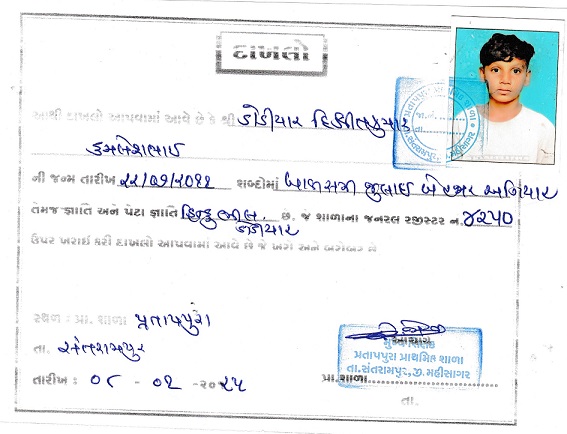 દાખલો
આથી દાખલો આપવામાં આવે છે કે શ્રી ડોડીયાર
કમલેશભાઈ
ની જન્મ તારીખ ૨૨/૦૭/૨૦૧૧ શબ્દોમાં બાવીસમી જુલાઈ બે હજાર અગિયાર
તેમજ જ્ઞાતિ અને પેટા જ્ઞાતિ હિન્દુ ભીલ. છે. જે શાળાના જનરલ રજીસ્ટર નં. ૪૨૫૦
ડોડીયાર
ઉપર ખરાઈ કરી દાખલો આપવામાં આવે છે જે ખરો અને બરોબર છે
સ્થળ : પ્રા. શાળા પ્રતાપપુરા
તા. સંતરામપુર
આચાર્ય
પ્રતાપપુરા પ્રાથમિક શાળા
તા.સંતરામપુર, જી.મહીસાગર
તારીખ : ૦૮ - ૦૨ - ૨૦૨૫ પ્રા.શાળા
તા.